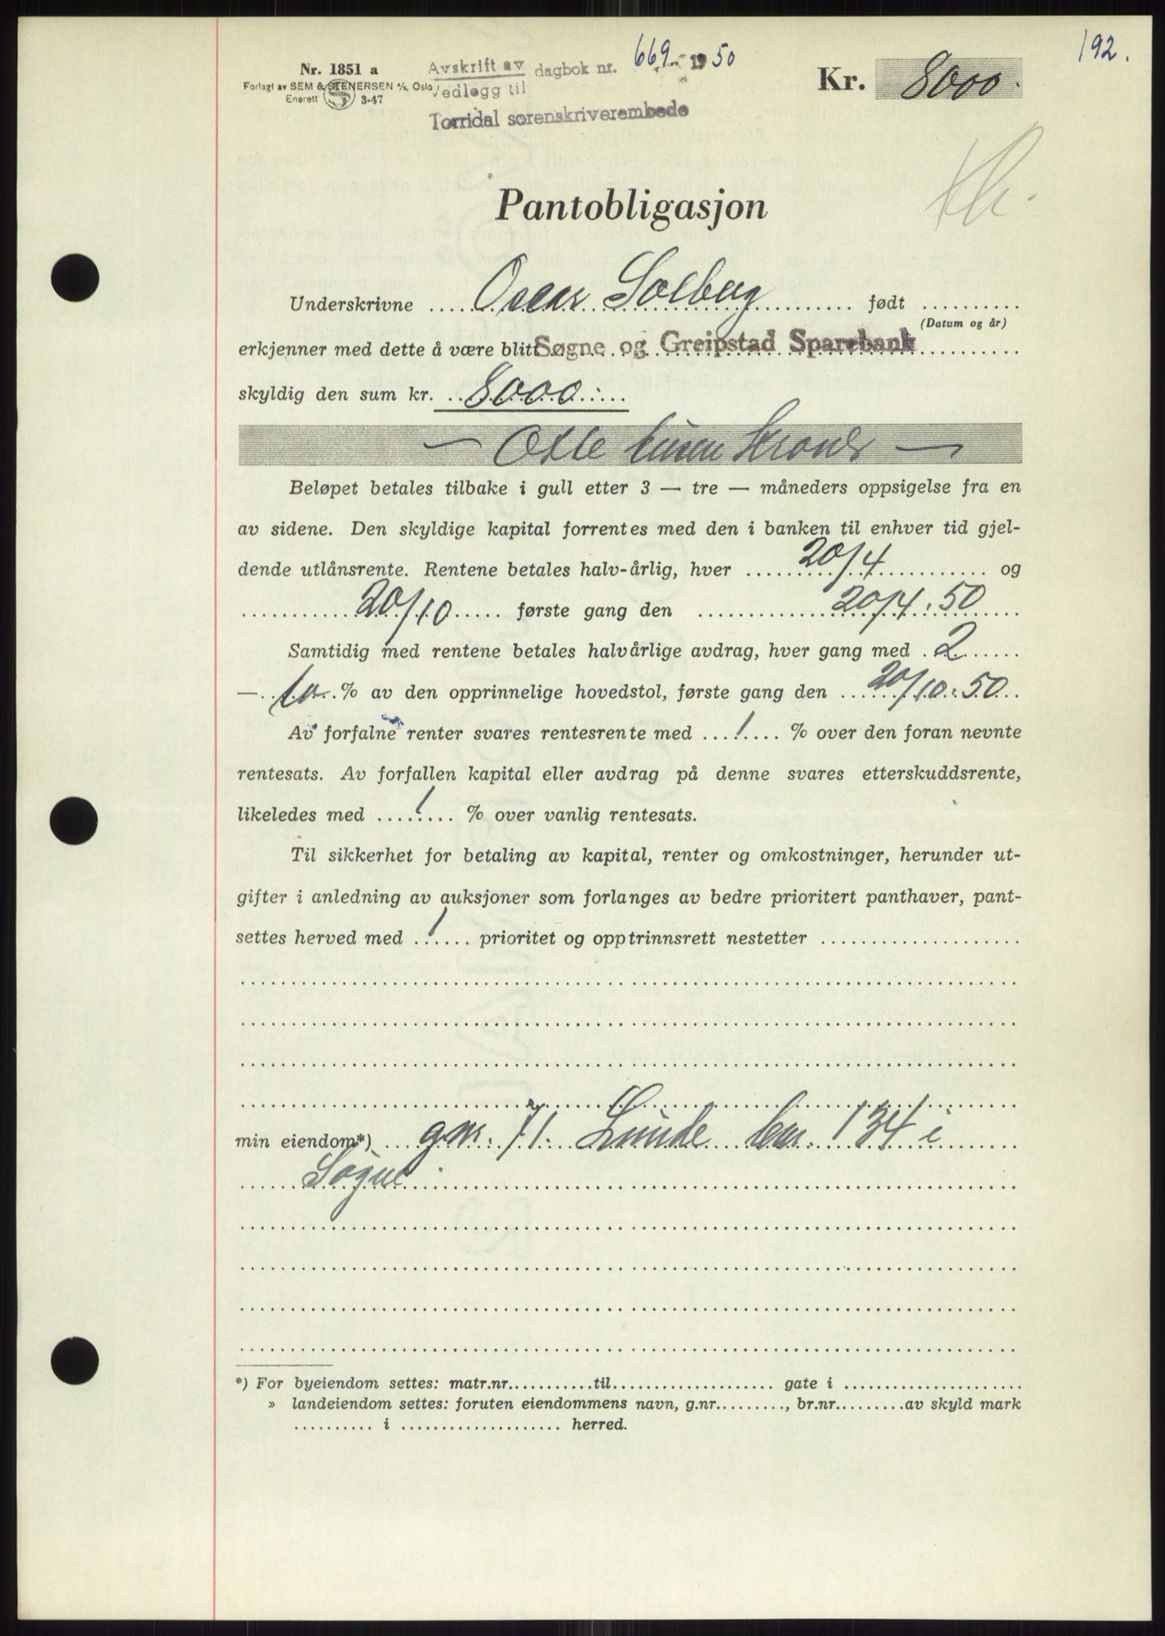 192.
Nr. 1851 a
Forlagt av SEM & STENERSEN A/S, Oslo
Enerett 3-47
Avskrift av dagbok nr. 669 1950
Vedlegg til
Torridal sorenskriverembede
Kr. 8000.
Pantobligasjon
Underskrivne Oscar Solberg født
(Datum og år)
erkjenner med dette å være blitt Søgne og Greipstad Sparebank
skyldig den sum kr. 8000.
— Otte tusen Kroner —
Beløpet betales tilbake i gull etter 3 — tre — måneders oppsigelse fra en
av sidene. Den skyldige kapital forrentes med den i banken til enhver tid gjel-
dende utlånsrente. Rentene betales halv-årlig, hver 20/4 og
20/10 første gang den 20/4.50
Samtidig med rentene betales halvårlige avdrag, hver gang med 2
— to % av den opprinnelige hovedstol, første gang den 20/10.50
Av forfalne renter svares rentesrente med 1 % over den foran nevnte
rentesats. Av forfallen kapital eller avdrag på denne svares etterskuddsrente,
likeledes med 1 % over vanlig rentesats.
Til sikkerhet for betaling av kapital, renter og omkostninger, herunder ut-
gifter i anledning av auksjoner som forlanges av bedre prioritert panthaver, pant-
settes herved med 1 prioritet og opptrinnsrett nestetter
min eiendom*) gnr. 71. Lunde bnr. 134 i
Søgne.
*) For byeiendom settes: matr.nr. til gate i
» landeiendom settes: foruten eiendommens navn, g.nr. , br.nr. av skyld mark
i herred.